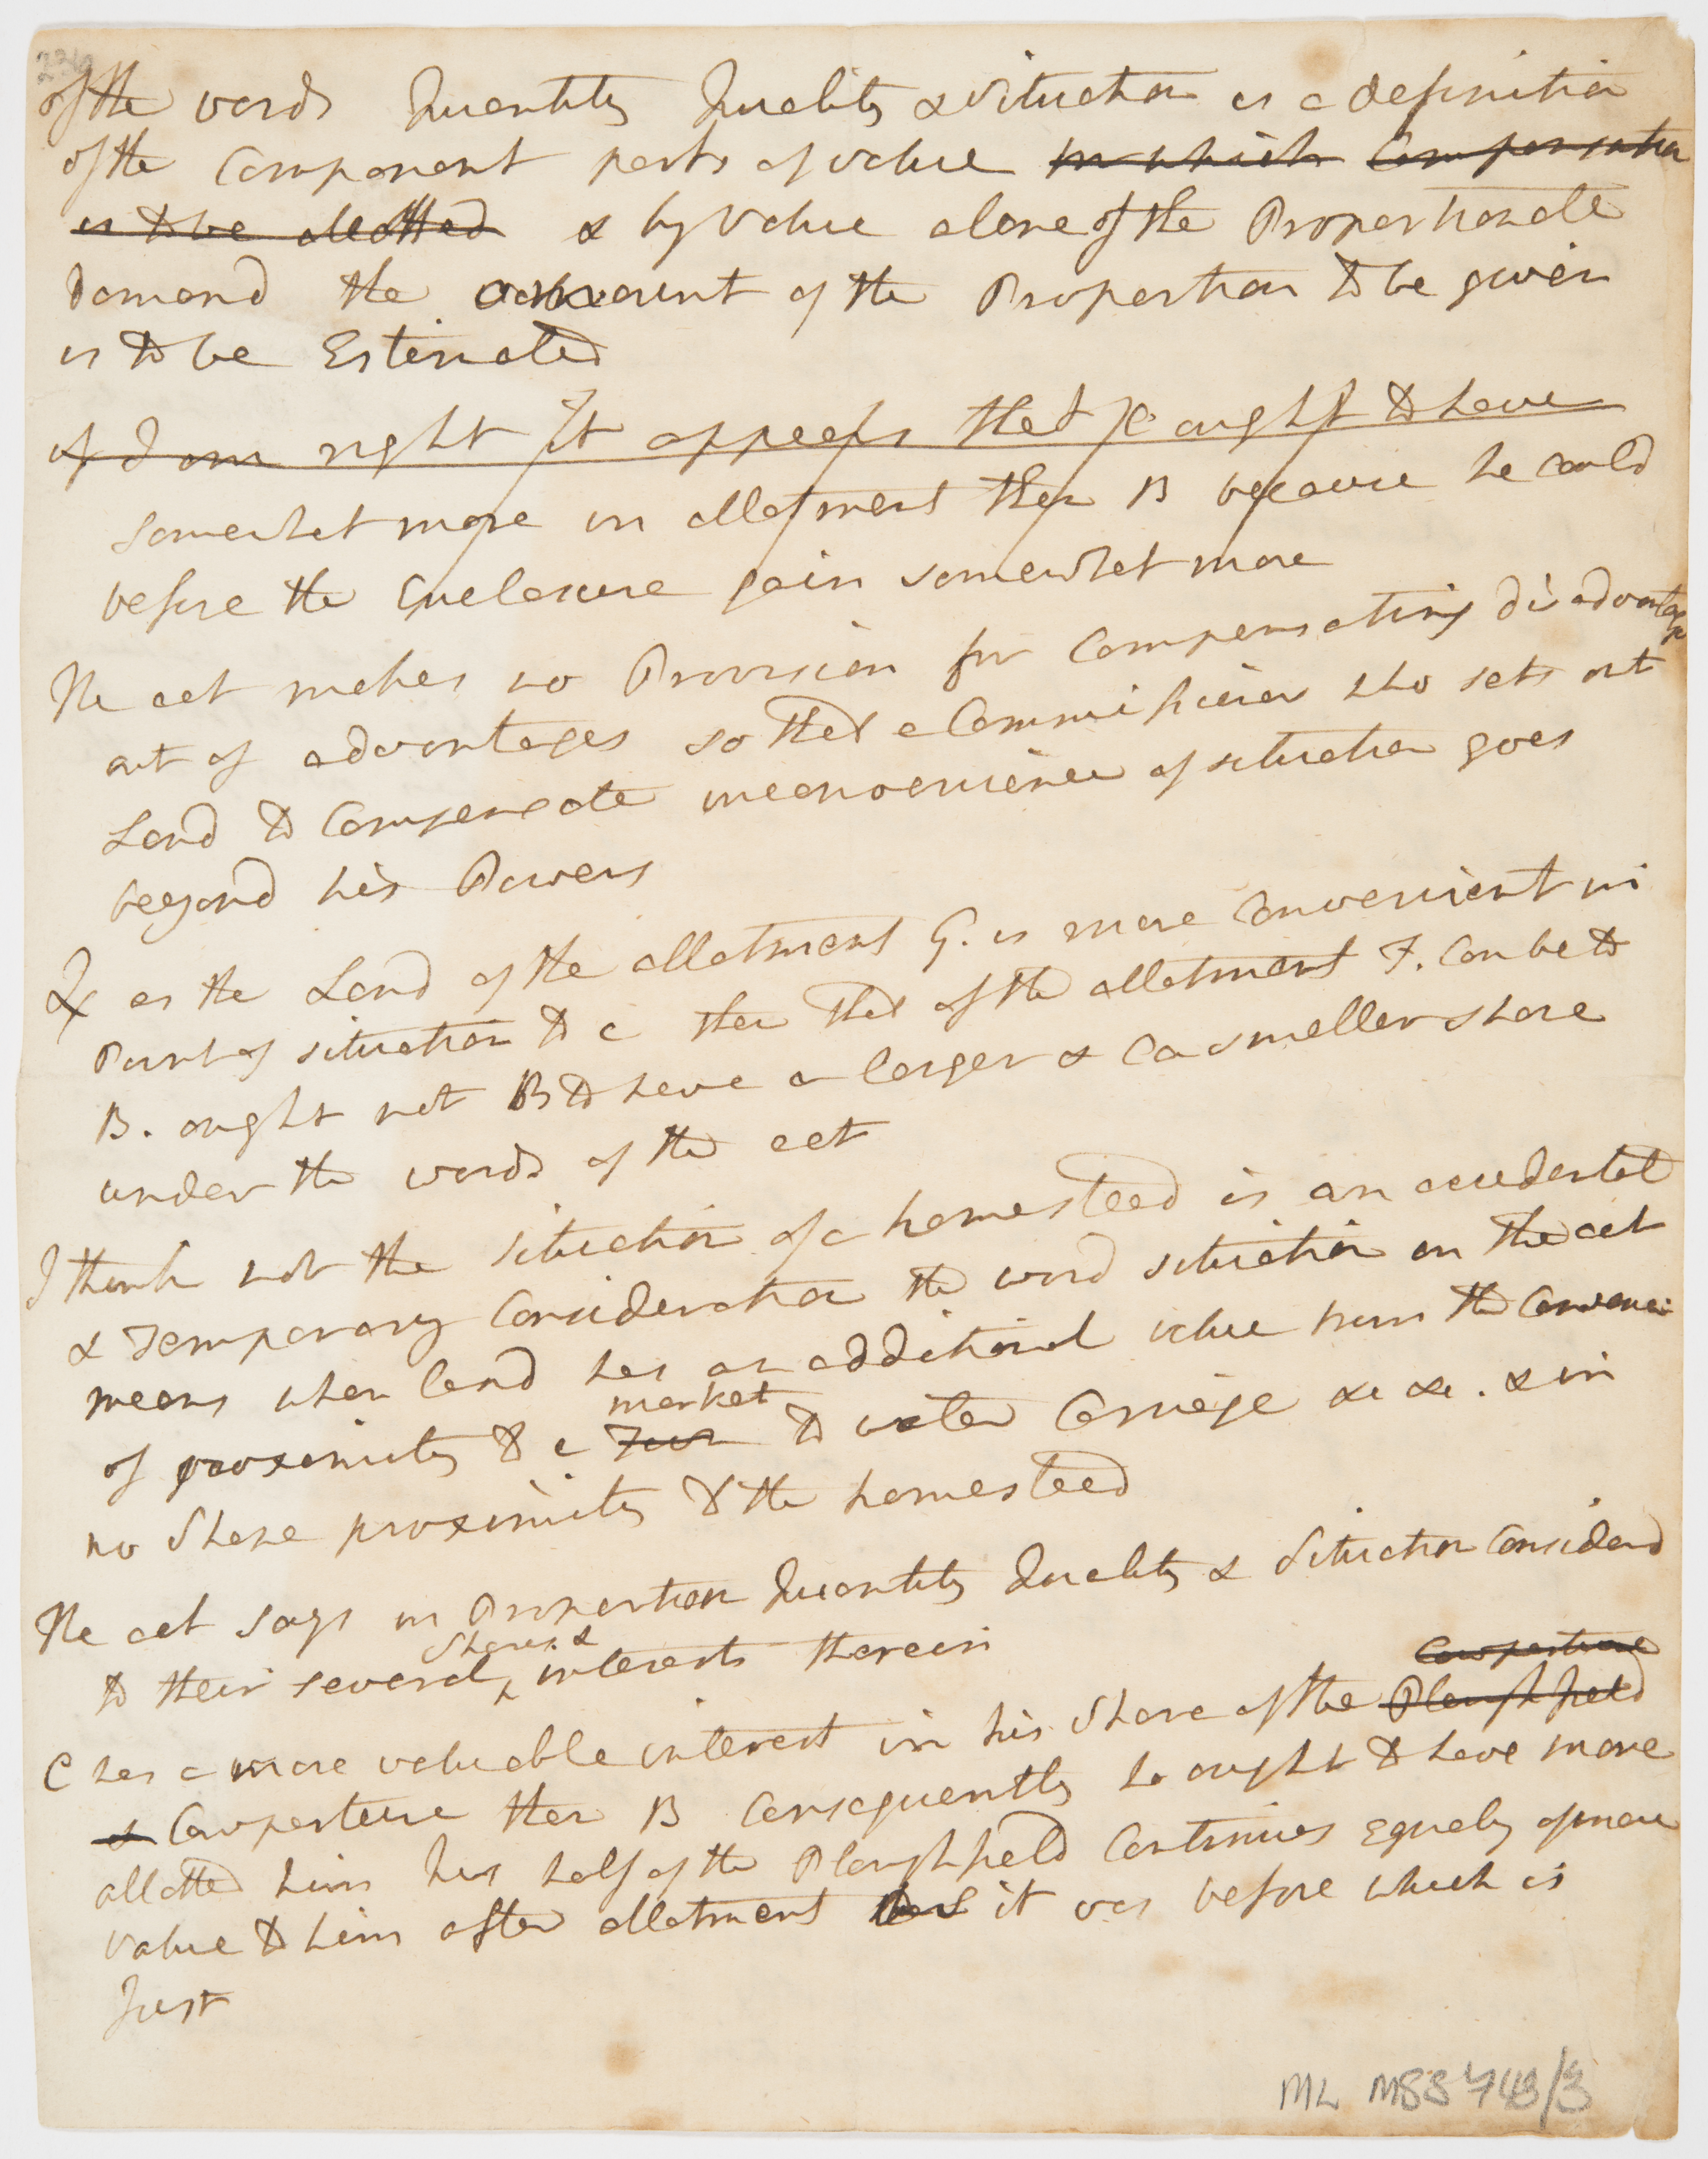 of the words Quantity Quality & Situation is a definition
of the Component parts of value in which Compensation
is to be allotted & by Value alone of the Proportionate
demand the amount of the Proportion to be given
is to be Estimated
if I am right It appears that C ought to have
somewhat more in allotment than B because he could
before the Enclosure gain somewhat more
The act makes no Provision for Compensating disadvantage
out of advantages so that a Commissioner who sets out
Land to Compensate inconvenience of situation goes
beyond his Powers
Qr as the Land of the allotment G. is more Convenient in
Point of situation to C than that of the allotment F. Can be to
B. ought not B to have a larger & C a smaller share
under the words of the act
I think not the situation of a homestead is an accidental
& Temporary Consideration the word situation in the act
means when land has an additional value from the Convenience
of proximity to a
market
to water Carriage &c &c. & in
no Shape proximity to the homestead
The act says in Proportion Quantity Quality & Situation Considerd
Shares &
to their several ‸ interests therein
Cowpasture
C has a more valuable interest in his Share of the Plough field
& Cowpasture than B Consequently he ought to have more
allotted him his half of the Ploughfield Continues Equaly of more
value to him after allotment it was before which is
Just
ML MSS 743/3